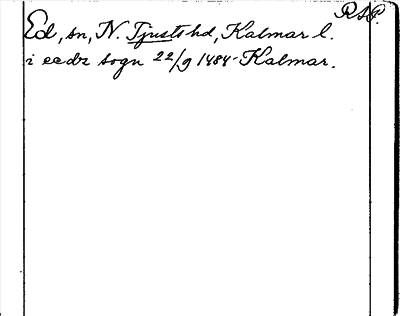 RAP.
Ed, sn, N. Tjusts hd, Kalmar l.
i eedz sogn 22/9 1484 Kalmar.